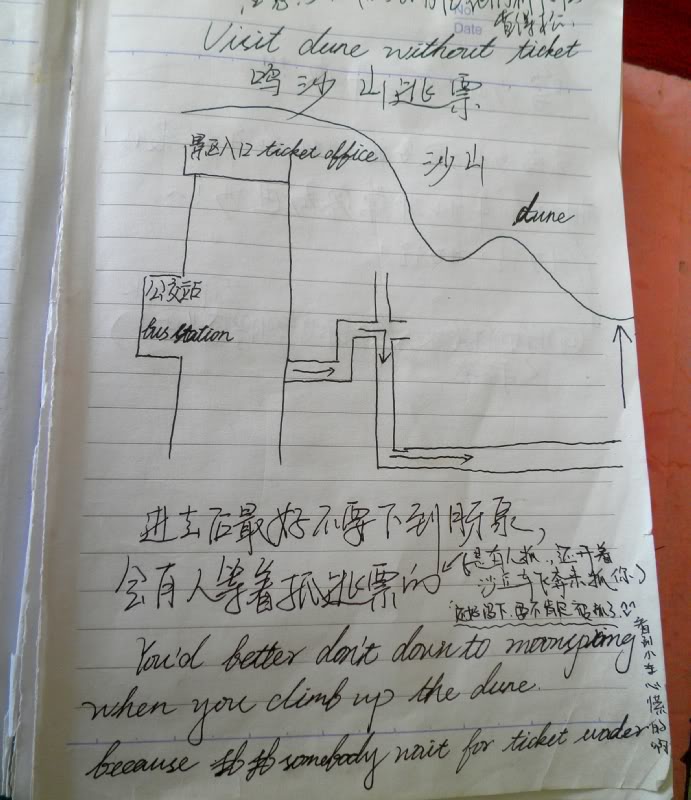 No
Date
Visit dune without ticket
鸣沙山逃票
景区入口 ticket office
沙山
dune
公交站
bus station
进去后最好不要下到月牙泉,
会有人等着抓逃票的
(是有人抓,还开着
沙丘车飞奔来抓你)
You'd better don't down to moonspring
when you climb up the dune.
because somebody wait for ticket
看到小车心慌的啊